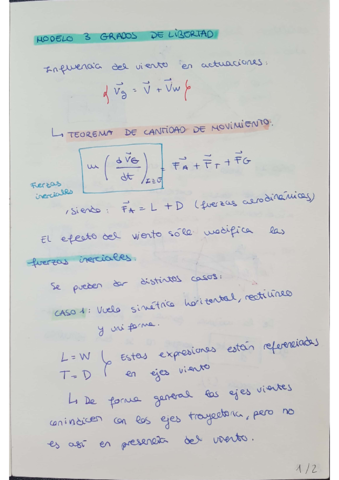 MODELO 3 GRADOS DE LIBERTAD
Influencia del viento en actuaciones.
{ V⃗g = V⃗ + V⃗w }
↳ TEOREMA DE CANTIDAD DE MOVIMIENTO.
m (dV⃗G/dt) = F⃗A + F⃗T + F⃗G
Fuerzas
inerciales
, siendo: F⃗A = L + D (fuerzas aerodinámicas)
El efecto del viento sólo modifica las
fuerzas inerciales.
Se pueden dar distintos casos:
CASO 1: Vuelo simétrico horizontal, rectilíneo
y uniforme.
L = W } Estas expresiones están referenciadas
T = D } en ejes viento
↳ De forma general los ejes vientos
coninciden con los ejes trayectoria, pero no
es así en presencia del viento.
1/2